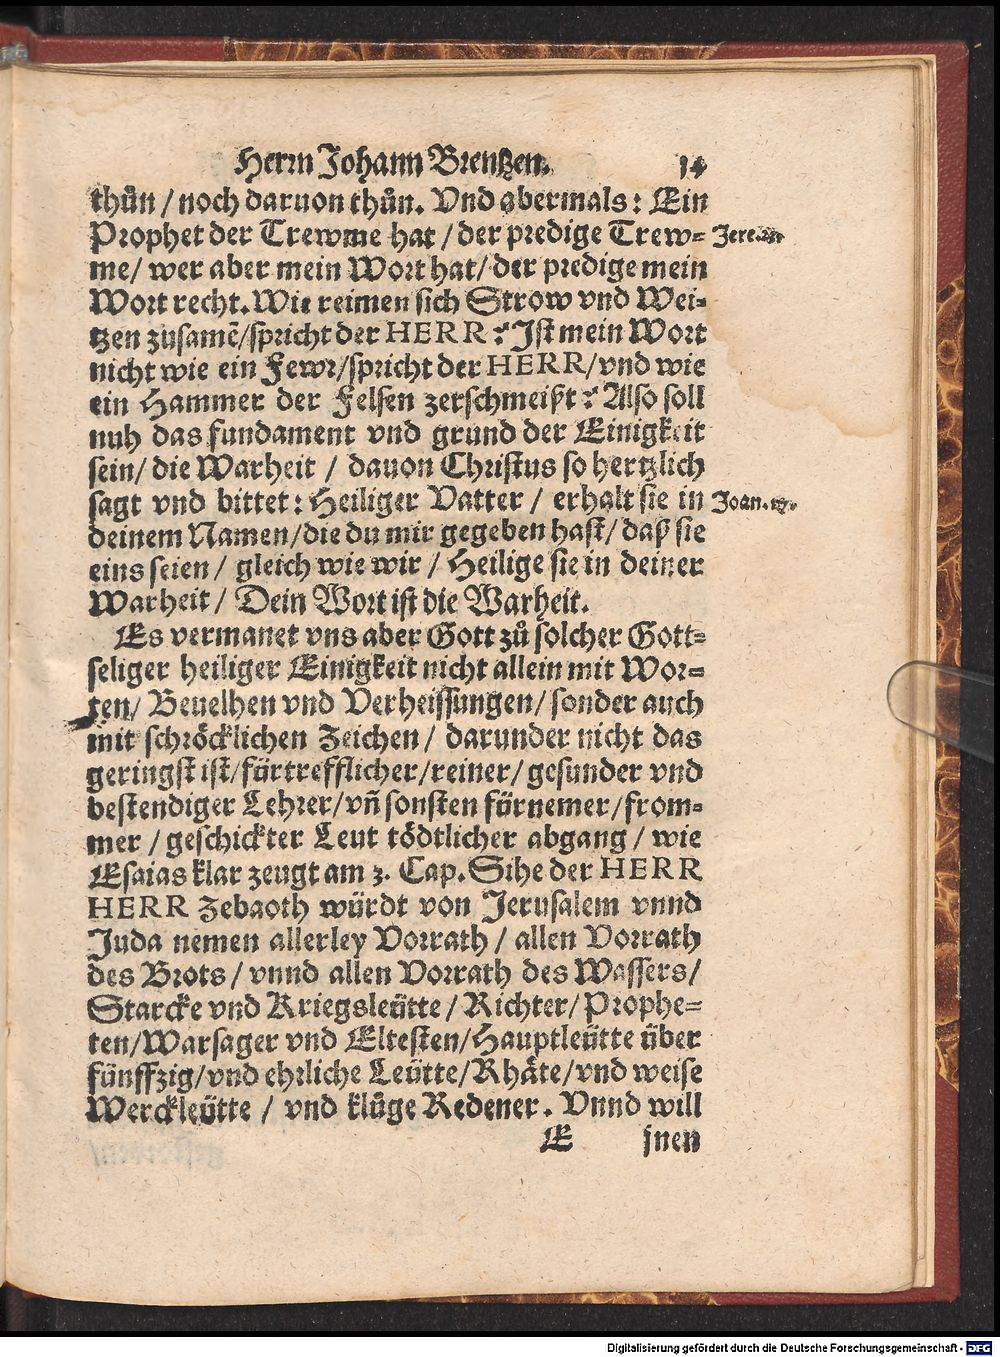 Herrn Johann Brentzen. 14
thůn / noch daruon thůn. Vnd abermals: Ein
Prophet der Trewme hat / der predige Trew= Jerem.
me / wer aber mein Wort hat / der predige mein
Wort recht. Wie reimen sich Strow vnd Wei=
tzen zusamẽ / spricht der HERR? Ist mein Wort
nicht wie ein Fewr / spricht der HERR / vnd wie
ein Hammer der Felsen zerschmeißt? Also soll
nuh das fundament vnd grund der Einigkeit
sein / die Warheit / dauon Christus so hertzlich
sagt vnd bittet: Heiliger Vatter / erhalt sie in Joan.
deinem Namen / die du mir gegeben hast / daß sie
eins seien / gleich wie wir / Heilige sie in deiner
Warheit / Dein Wort ist die Warheit.
Es vermanet vns aber Gott zů solcher Gott=
seliger heiliger Einigkeit nicht allein mit Wor=
ten / Beuelhen vnd Verheissungen / sonder auch
mit schröcklichen Zeichen / darunder nicht das
geringst ist / fürtrefflicher / reiner / gesunder vnd
bestendiger Lehrer / vñ sonsten fürnemer / from=
mer / geschickter Leut tödtlicher abgang / wie
Esaias klar zeugt am 3. Cap. Sihe der HERR
HERR Zebaoth würdt von Jerusalem vnnd
Juda nemen allerley Vorrath / allen Vorrath
des Brots / vnnd allen Vorrath des Wassers /
Starcke vnd Kriegsleütte / Richter / Prophe=
ten / Warsager vnd Eltesten / Hauptleütte über
fünffzig / vnd ehrliche Leütte / Rhäte / vnd weise
Werckleütte / vnd klůge Redener. Vnnd will
E jnen
Digitalisierung gefördert durch die Deutsche Forschungsgemeinschaft - DFG